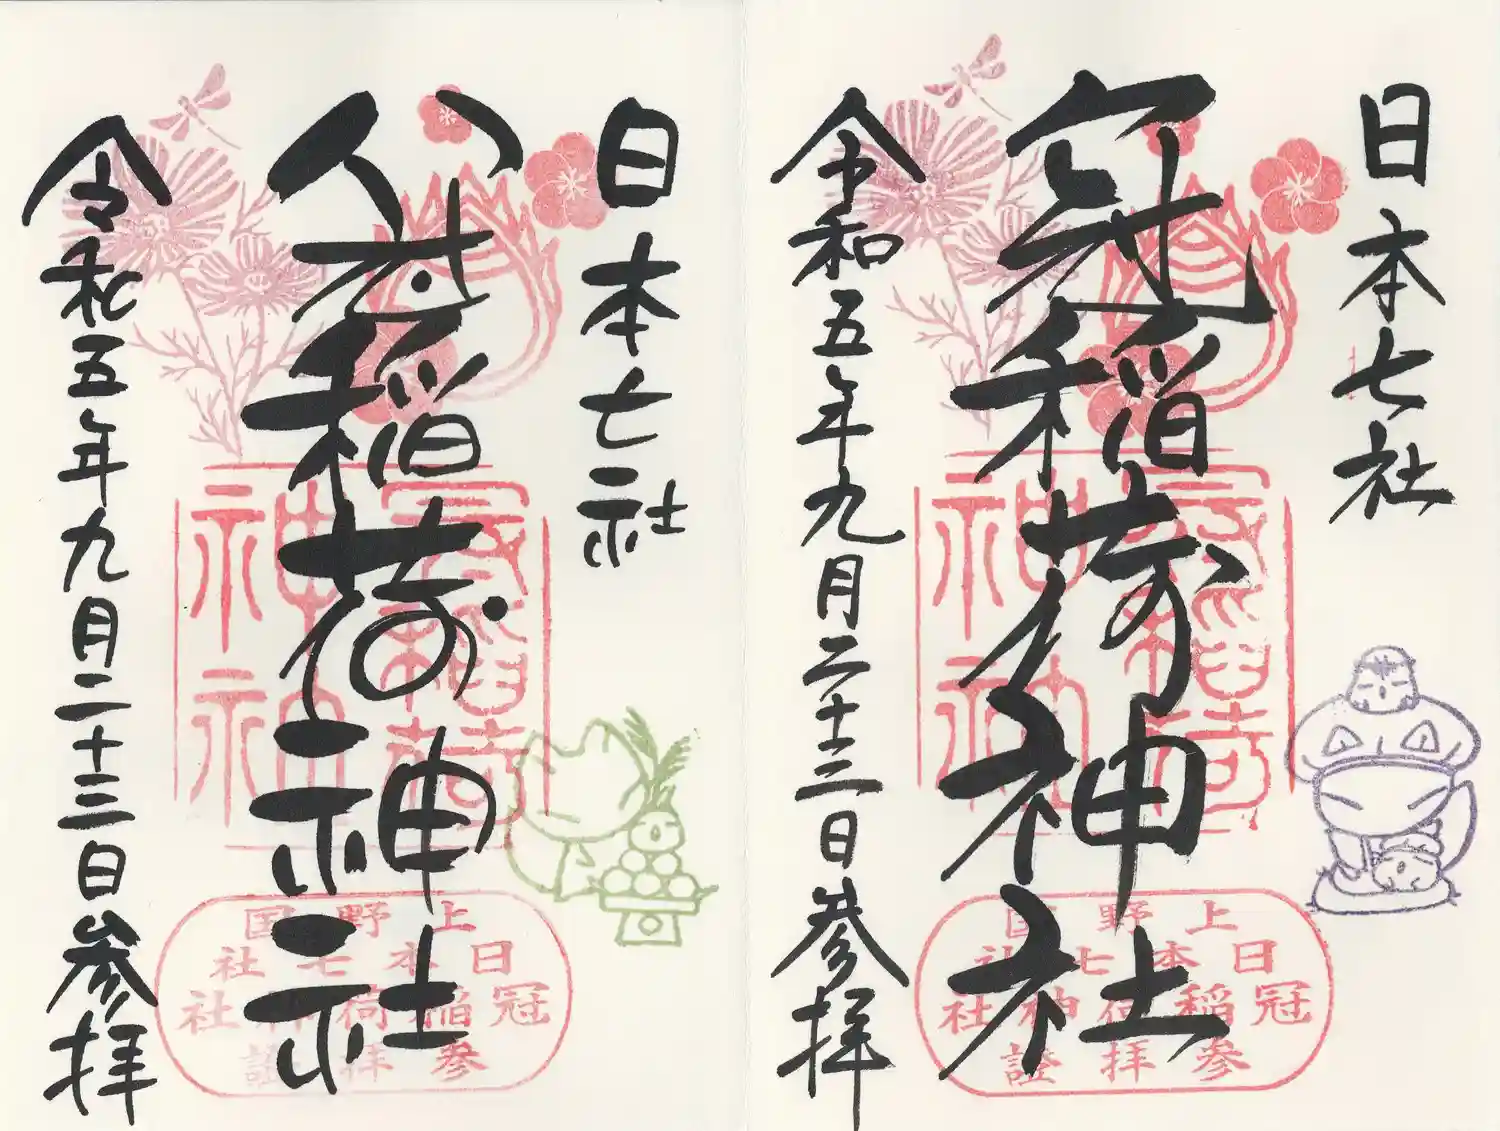 日本七社
冠稲荷神社
令和五年九月二十三日参拝
冠稲荷
神社
上野国
日本七社
冠稲荷神社
參拝證
日本七社
冠稲荷神社
令和五年九月二十三日参拝
冠稲荷
神社
上野国
日本七社
冠稲荷神社
參拝證